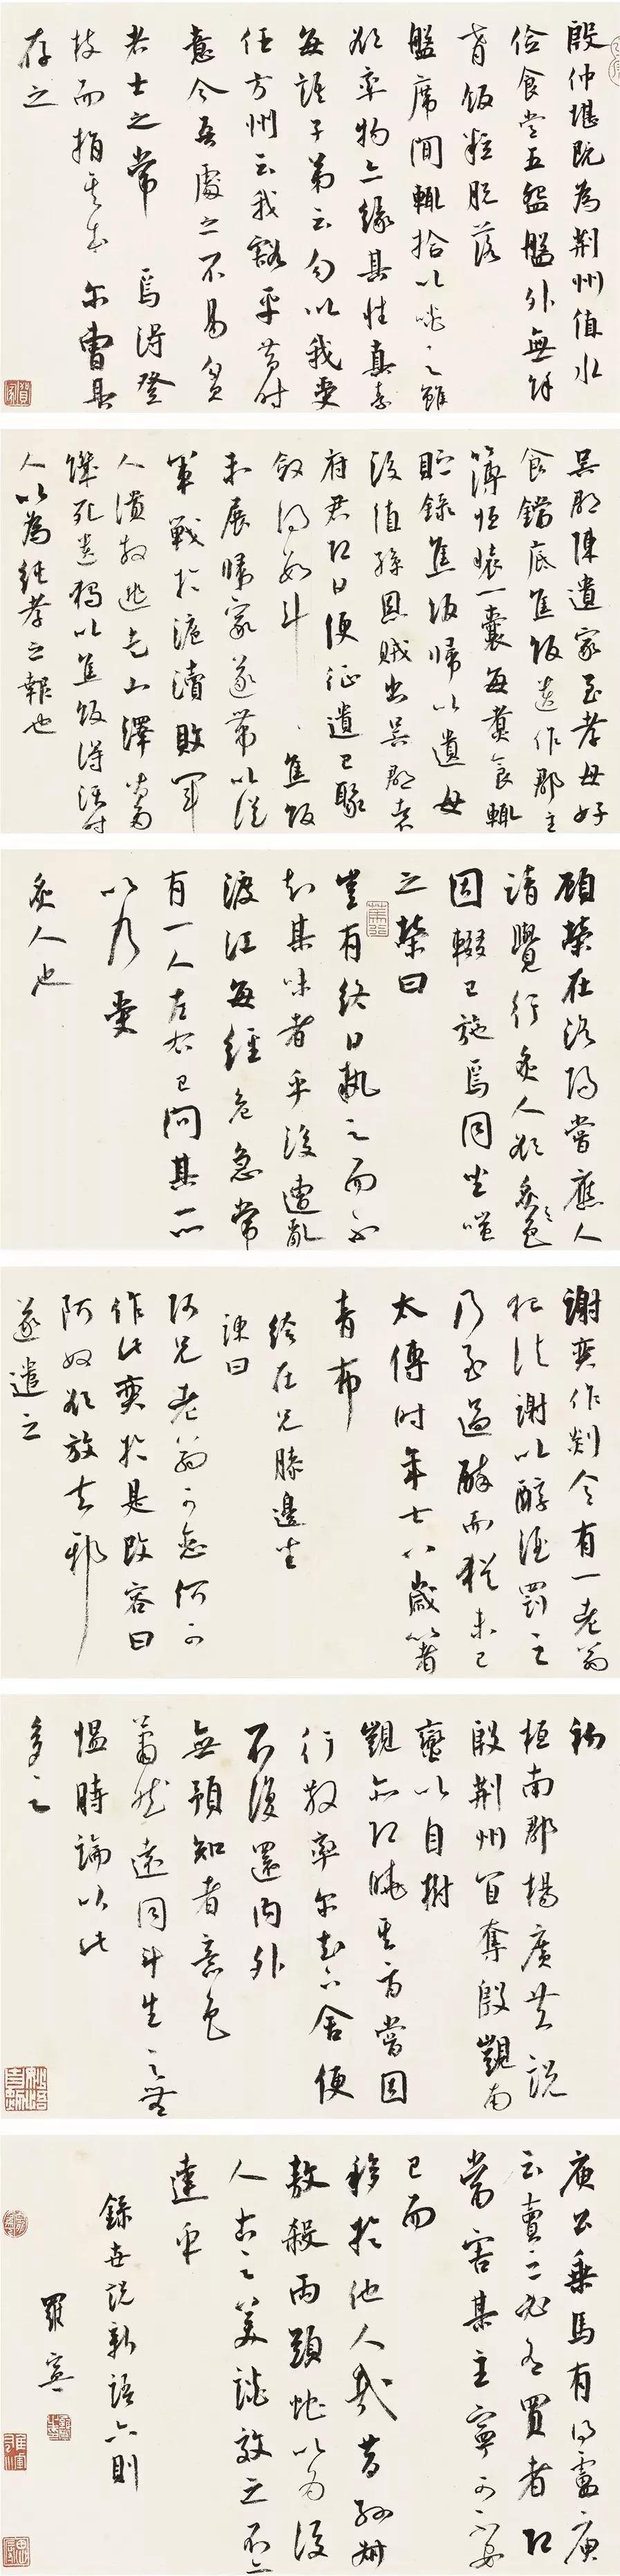 殷仲堪既為荊州值水
儉食常五盌盤外無餘
肴飯粒脫落
盤席間輒拾以噉之雖
欲率物亦緣其性真素
每語子弟云勿以我受
任方州云我豁平昔時
意今吾處之不易貧
者士之常 焉得登
枝而捐其本 爾曹其
存之
吳郡陳遺家至孝母好
食鐺底焦飯遺作郡主
簿恒裝一囊每煮食輒
貯錄焦飯歸以遺母
後值孫恩賊出吳郡袁
府君即日便征遺已聚
斂得數斗 焦飯
未展歸家遂帶以從
軍戰於滬瀆敗軍
人潰散逃走山澤皆多
饑死遺獨以焦飯得活時
人以為純孝之報也
顧榮在洛陽嘗應人
請覺行炙人欲炙之色
因輟己施焉同坐嗤
之榮曰
豈有終日執之而不
知其味者乎後遭亂
渡江每經危急常
有一人左右已問其所
以乃受
炙人也
謝奕作剡令有一老翁
犯法謝以醇酒罰之
乃至過醉而猶未已
太傅時年七八歲著
青布
絝在兄膝邊坐
諫曰
阿兄老翁可念何可
作此奕於是改容曰
阿奴欲放去邪
遂遣之
初
桓南郡楊廣共說
殷荊州宜奪殷覬南
蠻以自樹
覬亦即曉其旨嘗因
行散率爾去下舍便
不復還內外
無預知者意色
蕭然遠同鬥生之無
慍時論以此
多之
庾公乘馬有的盧庾
云賣之必有買者即
當害其主寧可不安
己而
移於他人哉昔孫叔
敖殺兩頭蛇以為後
人古之美談效之不亦
達乎
錄世說新語六則
羅寧